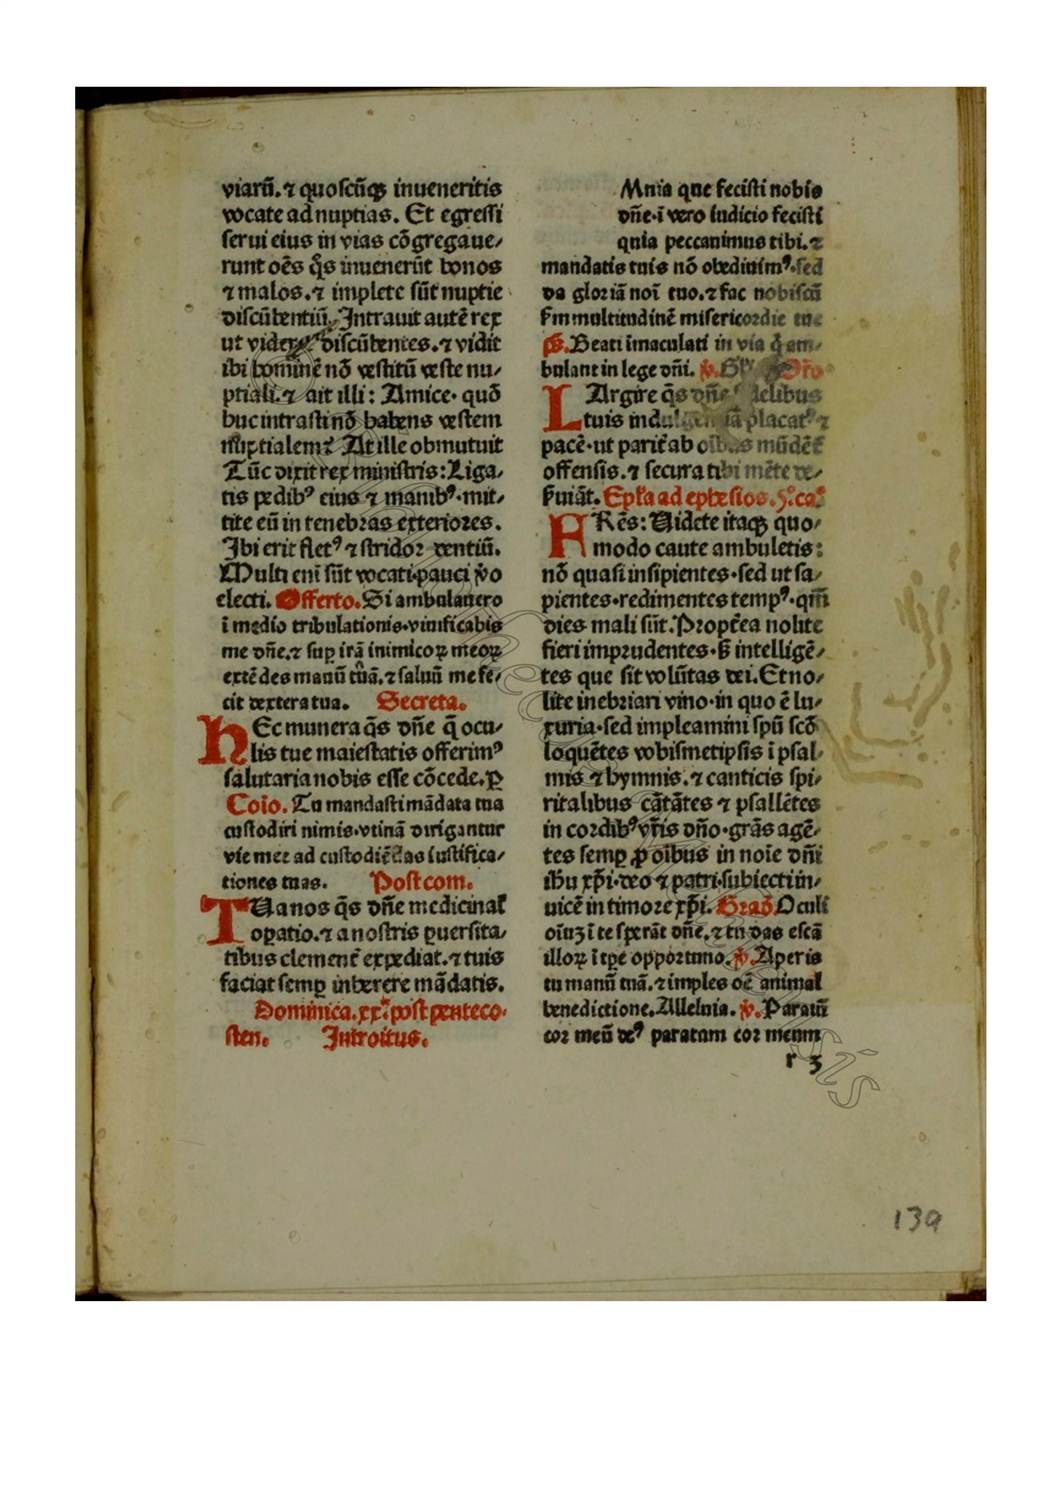 viarū. ⁊ quoscūqꝫ inueneritis
vocate ad nuptias. Et egressi
serui eius in vias cōgregaue⸗
runt oēs q̄s inuenerūt bonos
⁊ malos. ⁊ implete sūt nuptie
discūbentiū. Intrauit autē rex
ut videret discūbentes. ⁊ vidit
ibi hominē nō vestitū veste nu⸗
ptiali. ⁊ ait illi: Amice· quō
huc intrasti nō habens vestem
nuptialem? At ille obmutuit
Tūc dixit rex ministris: Liga⸗
tis pedibꝰ eius ⁊ manibꝰ· mit⸗
tite eū in tenebras exteriores.
Ibi erit fletꝰ ⁊ stridor dentiū.
Multi enī sūt vocati· pauci v̄o
electi. Offerto. Si ambulauero
ī medio tribulationis· viuificabis
me dn̄e. ⁊ suꝑ irā inimicoꝝ meoꝝ
extēdes manū tuā. ⁊ saluū me fe⸗
cit dextera tua. Secreta.
HEc munera q̄s dn̄e q̄ ocu⸗
lis tue maiestatis offerimꝰ
salutaria nobis esse cōcede. ꝑ
Coīo. Tu mandasti mādata tua
custodiri nimis· vtinā dirigantur
vie mee ad custodiēdas iustifica⸗
tiones tuas. Postcom.
TUa nos q̄s dn̄e medicinal̄
opatio. ⁊ a nostris ꝑuersita⸗
tibus clement̄ expediat. ⁊ tuis
faciat semꝑ inherere mādatis.
Dominica. xx. post penteco⸗
sten. Introitus.
Mnia que fecisti nobis
dn̄e· ī vero iudicio fecisti
quia peccauimus tibi. ⁊
mandatis tuis nō obediuimꝰ· sed
da gloriā noī tuo. ⁊ fac nobiscū
s̄m multitudinē misericordie tue
p̄s. Beati īmaculati in via q̄ am⸗
bulant in lege dn̄i. v̄. Gl'. Or̄o
LArgire q̄s dn̄e fidelibus
tuis indulgentiā placatꝰ ⁊
pacē· ut parit̄ ab oībus mūdēt̄
offensis. ⁊ secura tibi mēte de⸗
s̄uiāt. Epl̄a ad ephesios. v. ca.
FRēs: Uidete itaqꝫ quo⸗
modo caute ambuletis:
nō quasi insipientes· sed ut sa⸗
pientes· redimentes tempꝰ· qm̄
dies mali sūt. Propt̄ea nolite
fieri imprudentes· s̄ intelligē⸗
tes que sit volūtas dei. Et no⸗
lite inebriari vino· in quo ē lu⸗
xuria· sed impleamini spū scō
loquētes vobismetipsis ī psal⸗
mis ⁊ hymnis. ⁊ canticis spi⸗
ritalibus cātātes ⁊ psallētes
in cordibꝰ vr̄is dn̄o· gr̄as agē⸗
tes semꝑ ꝓ oībus in noīe dn̄i
ihu xp̄i· deo ⁊ patri· subiecti in⸗
uicē in timore xp̄i. Grad̄. Oculi
oīuꝫ ī te sperāt dn̄e. ⁊ tu das escā
illoꝝ ī tp̄e opportuno. v̄. Aperis
tu manū tuā. ⁊ imples oē animal
benedictione. Alleluia. v̄. Paratū
cor meū deꝰ paratum cor meum
r 3
139